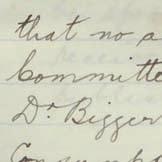 that no a
Committe
Dr Bigger